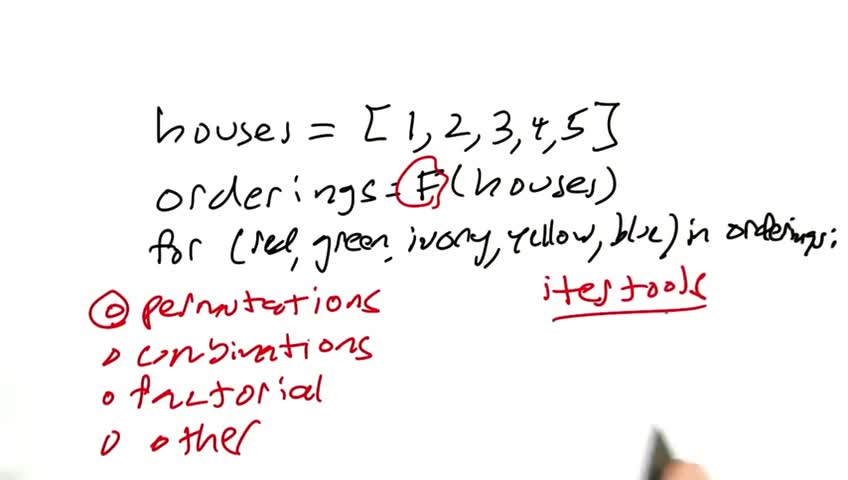 houses = [1, 2, 3, 4, 5]
orderings = F(houses)
for (red, green, ivory, yellow, blue) in orderings:
permutations
itertools
combinations
factorial
other